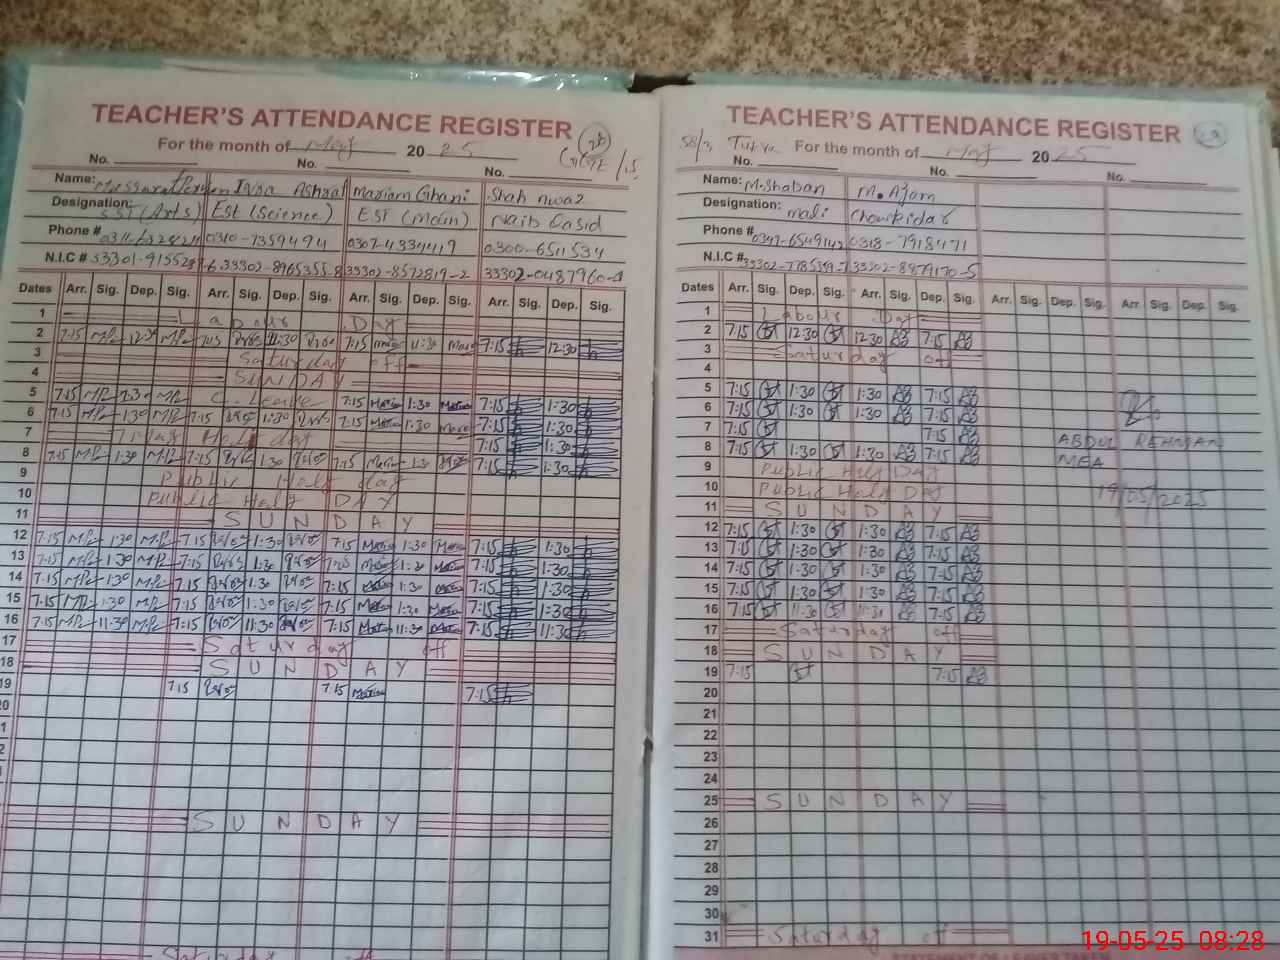 TEACHER'S ATTENDANCE REGISTER
For the month of May 2025
28
No. No. No.
Name: Mussarat Parveen Iqra Ashraf Mariam Ghani Shah nwaz
Designation: SST (Arts) Est (Science) EST (Main) Naib Qasid
Phone # 0310-7359494 0307-4334419 0300-6511534
N.I.C # 33302-8965355-8 33302-8572819-2 33302-0487960-
Dates Arr. Sig. Dep. Sig. Arr. Sig. Dep. Sig. Arr. Sig. Dep. Sig. Arr. Sig. Dep. Sig.
1 Labour Day
2 7:15 12:30 7:15 11:30 7:15 11:30 7:15 12:30
3 Saturday off
4 SUNDAY
5 7:15 1:30 C. Leave 7:15 1:30 7:15 1:30
6 7:15 1:30 7:15 1:30 7:15 1:30 7:15 1:30
7 Holi day 7:15 1:30
8 7:15 1:30 7:15 1:30 7:15 1:30 7:15 1:30
9 Public Holy day
10 Public Holy DAY
11 SUNDAY
12 7:15 1:30 7:15 1:30 7:15 1:30 7:15 1:30
13 7:15 1:30 7:15 1:30 7:15 1:30 7:15 1:30
14 7:15 1:30 7:15 1:30 7:15 1:30 7:15 1:30
15 7:15 1:30 7:15 1:30 7:15 1:30 7:15 1:30
16 7:15 11:30 7:15 11:30 7:15 11:30 7:15 11:30
17 Saturday off
18 SUNDAY
19 7:15 7:15 7:15
20
SUNDAY
Saturday off
TEACHER'S ATTENDANCE REGISTER
29
58/3 Tukra For the month of May 2025
No. No. No.
Name: M.Shaban M. Ajam
Designation: mali Chowkidar
Phone # 0347-6549142 0318-7918471
N.I.C # 33302-7785359-7 33302-8879170-5
Dates Arr. Sig. Dep. Sig. Arr. Sig. Dep. Sig. Arr. Sig. Dep. Sig. Arr. Sig. Dep. Sig.
1 Labour Day
2 7:15 12:30 12:30 7:15
3 Saturday off
4
5 7:15 1:30 1:30 7:15
6 7:15 1:30 1:30 7:15
7 7:15 7:15 ABDUL REHMAN
8 7:15 1:30 1:30 7:15 MEA
9 Public Holy DAY
10 Public Holy DAY 19/05/2025
11 SUNDAY
12 7:15 1:30 1:30 7:15
13 7:15 1:30 1:30 7:15
14 7:15 1:30 1:30 7:15
15 7:15 1:30 1:30 7:15
16 7:15 11:30 11:30 7:15
17 Saturday off
18 SUNDAY
19 7:15 7:15
20
21
22
23
24
25 SUNDAY
26
27
28
29
30
31 Saturday off
STATEMENT OF LEAVES TAKEN
19-05-25 08:28